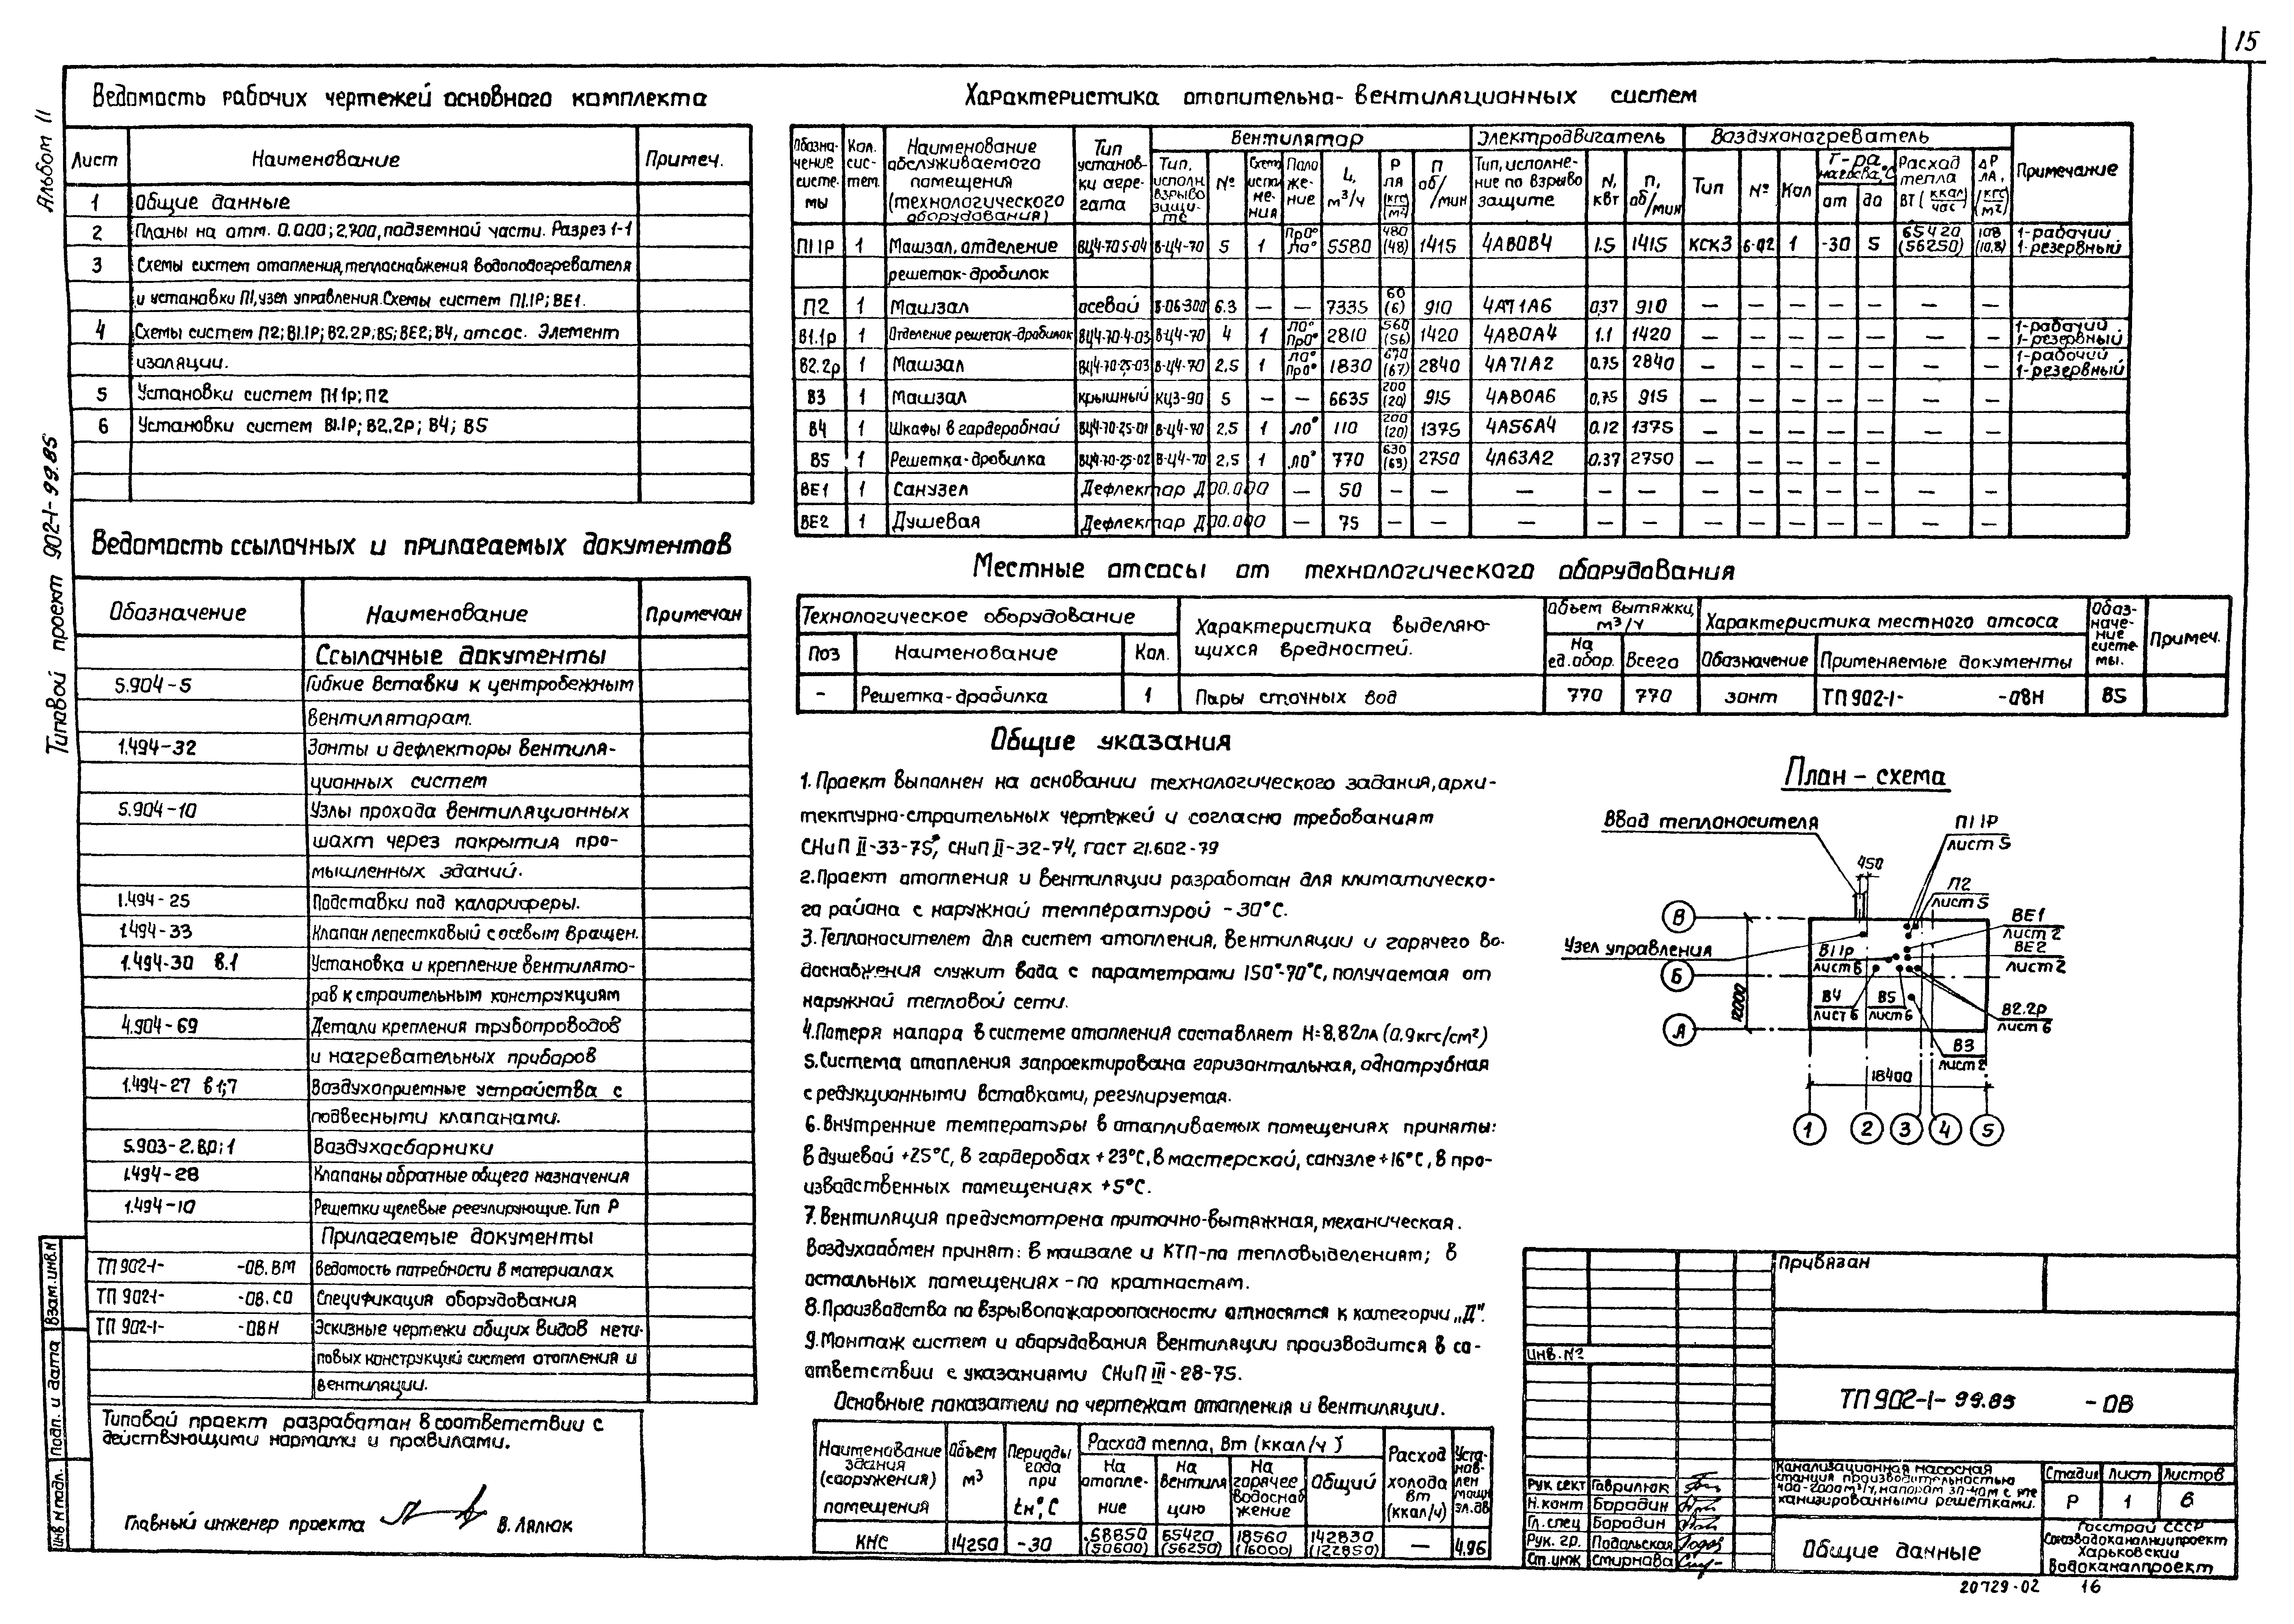 15
Альбом II
Типовой проект 902-1-99.85
Ведомость рабочих чертежей основного комплекта
Лист Наименование Примеч.
1 Общие данные
2 Планы на отм. 0.000; 2.700, подземной части. Разрез 1-1
3 Схемы систем отопления, теплоснабжения водоподогревателя
и установки П1, узел управления. Схемы систем П1.1Р; ВЕ1.
4 Схемы систем П2; В1.1Р; В2.2Р; В5; ВЕ2; В4, отсос. Элемент
изоляции.
5 Установки систем П1 1р; П2
6 Установки систем В1.1Р; В2.2р; В4; В5
Ведомость ссылочных и прилагаемых документов
Обозначение Наименование Примечан
Ссылочные документы
5.904-5 Гибкие вставки к центробежным
вентиляторам.
1.494-32 Зонты и дефлекторы вентиля-
ционных систем
5.904-10 Узлы прохода вентиляционных
шахт через покрытия про-
мышленных зданий.
1.494-25 Подставки под калориферы.
1.494-33 Клапан лепестковый с осевым вращен.
1.494-30 В.1 Установка и крепление вентилято-
ров к строительным конструкциям
4.904-69 Детали крепления трубопроводов
и нагревательных приборов
1.494-27 в 1;7 Воздухоприемные устройства с
подвесными клапанами.
5.903-2. В.0; 1 Воздухосборники
1.494-28 Клапаны обратные общего назначения
1.494-10 Решетки щелевые регулирующие. Тип Р
Прилагаемые документы
ТП 902-1- -ОВ.ВМ Ведомость потребности в материалах
ТП 902-1- -ОВ.СО Спецификация оборудования
ТП 902-1- -ОВН Эскизные чертежи общих видов нети-
повых конструкций систем отопления и
вентиляции.
Типовой проект разработан в соответствии с
действующими нормами и правилами.
Главный инженер проекта В. Лялюк
Взам. инв. N
Подп. и дата
Инв N подл.
Характеристика отопительно-вентиляционных систем
Обозна-чение систе-мы Кол. сис-тем. Наименование обслуживаемого помещения (технологического оборудования) Тип установ-ки агре-гата Вентилятор Электродвигатель Воздухонагреватель Примечание
Тип, исполн. взрыво защи-те № Схема испол не-ния Поло же-ние L, м³/ч Р ПА (кгс/м²) П об/мин Тип, исполне-ние по взрыво защите N, кВт п, об/мин Тип № Кол Т-ра нагрева,°С от до Расход тепла Вт (ккал/час) ΔР ПА, (кгс/м²)
П1 1Р 1 Машзал, отделение ВЦ4-70 5-04 В-Ц4-70 5 1 Пр0° Л0° 5580 480 (48) 1415 4А80В4 1.5 1415 КСК3 6-02 1 -30 5 65420 (56250) 108 (10,8) 1-рабочий 1-резервный
решеток-дробилок
П2 1 Машзал осевой В-06-300 6.3 — — 7335 60 (6) 910 4А71А6 0,37 910 — — — — — — —
В1.1р 1 Отделение решеток-дробилок ВЦ4-70-4-03 В-Ц4-70 4 1 Л0° Пр0° 2810 560 (56) 1420 4А80А4 1.1 1420 — — — — — — — 1-рабочий 1-резервный
В2.2р 1 Машзал ВЦ4-70-2,5-03 В-Ц4-70 2,5 1 Л0° Пр0° 1830 670 (67) 2840 4А71А2 0.75 2840 — — — — — — — 1-рабочий 1-резервный
В3 1 Машзал крышный КЦ3-90 5 — — 6635 200 (20) 915 4А80А6 0,75 915 — — — — — — —
В4 1 Шкафы в гардеробной ВЦ4-70-2,5-01 В-Ц4-70 2,5 1 Л0° 110 200 (20) 1375 4А56А4 0.12 1375 — — — — — — —
В5 1 Решетка-дробилка ВЦ4-70-2,5-02 В-Ц4-70 2,5 1 Л0° 770 630 (63) 2750 4А63А2 0,37 2750 — — — — —
ВЕ1 1 Санузел Дефлектор Д00.000 — 50 — — — — — — — — — — — —
ВЕ2 1 Душевая Дефлектор Д00.000 — 75 — — — — — — — — — — — —
Местные отсосы от технологического оборудования
Технологическое оборудование Характеристика выделяю-щихся вредностей. Объем вытяжки, м³/ч Характеристика местного отсоса Обоз-наче-ние систе-мы. Примеч.
Поз Наименование Кол. На ед.обор. Всего Обозначение Применяемые документы
- Решетка-дробилка 1 Пары сточных вод 770 770 зонт ТП 902-1- -ОВН В5
Общие указания
1. Проект выполнен на основании технологического задания, архи-
тектурно-строительных чертежей и согласно требованиям
СНиП II-33-75*, СНиП II-32-74, ГОСТ 21.602-79
2. Проект отопления и вентиляции разработан для климатическо-
го района с наружной температурой -30°С.
3. Теплоносителем для систем отопления, вентиляции и горячего во-
доснабжения служит вода с параметрами 150°-70°С, получаемая от
наружной тепловой сети.
4. Потеря напора в системе отопления составляет Н=8,82па (0.9кгс/см²)
5. Система отопления запроектирована горизонтальная, однотрубная
с редукционными вставками, регулируемая.
6. Внутренние температуры в отапливаемых помещениях приняты:
в душевой +25°С, в гардеробах +23°С, в мастерской, санузле +16°С, в про-
изводственных помещениях +5°С.
7. Вентиляция предусмотрена приточно-вытяжная, механическая.
Воздухообмен принят: в машзале и КТП-по тепловыделениям; в
остальных помещениях - по кратностям.
8. Производства по взрывопожароопасности относятся к категории „Д".
9. Монтаж систем и оборудования вентиляции производится в со-
ответствии с указаниями СНиП III-28-75.
Основные показатели по чертежам отопления и вентиляции.
Наименование здания (сооружения) помещения Объем м³ Периоды года при tн,°С Расход тепла, Вт (ккал/ч) Расход холода Вт (ккал/ч) Уста-нов-лен мощн эл.дв
На отопле-ние На вентиля цию На горячее водоснаб жение Общий
КНС 14250 -30 58850 (50600) 65420 (56250) 18560 (16000) 142830 (122850) — 4.96
План - схема
Ввод теплоносителя
П1 1Р
лист 5
450
П2
лист 5
В
Узел управления
ВЕ1
лист 2
ВЕ2
лист 2
В1 1р
лист 6
Б
12000
В4
лист 6
В5
лист 6
В2.2р
лист 6
А
В3
лист 2
18400
1 2 3 4 5
Привязан
Инв. №
ТП 902-1-99.85 -ОВ
Канализационная насосная
станция производительностью
400-2000м³/ч, напором 30-40м с ме
ханизированными решетками.
Стадия Лист Листов
Р 1 6
Рук сект Гаврилюк
Н. конт Бородин
Гл. спец Бородин
Рук. гр. Подольская
Ст. инж Смирнова
Общие данные
Госстрой СССР
Союзводоканалниипроект
Харьковский
Водоканалпроект
20729-02 16